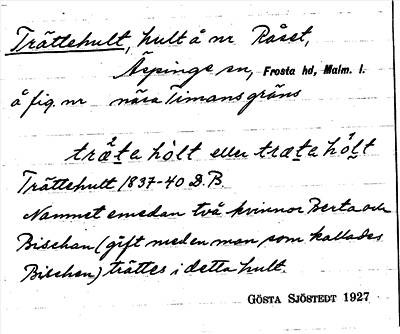 Trättehult, hult å nr Råset,
Äspinge sn, Frosta hd, Malm. l.
å fig. nr nära Timans gräns
træta hòlt eller træta hòlt
Trättehult 1837-40 D.B.
Namnet emedan två kvinnor Berta och
Bischan (gift med en man som kallades
Bischen) trättes i detta hult.
GÖSTA SJÖSTEDT 1927